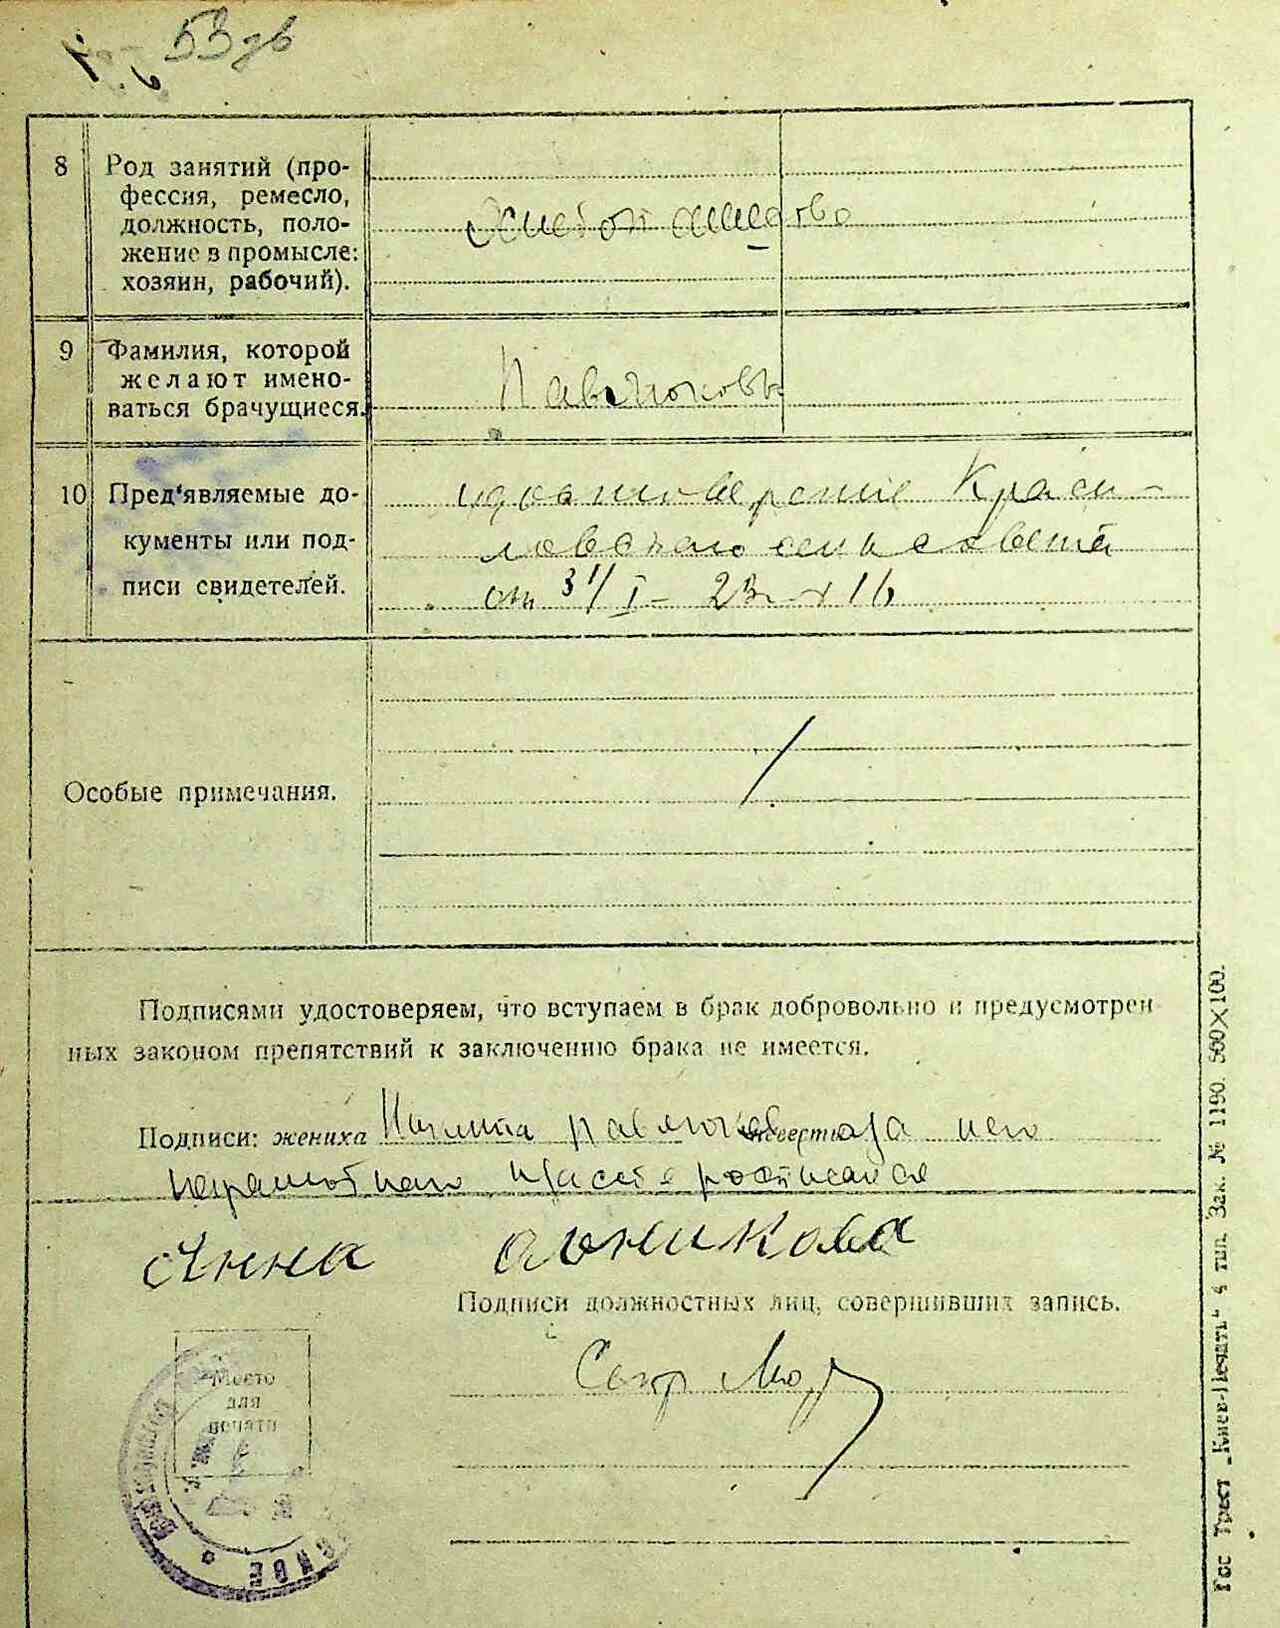 53 зв
8 Род занятий (про-
фессия, ремесло,
должность, поло-
жение в промысле:
хозяин, рабочий).
9 Фамилия, которой
желают имено-
ваться брачущиеся.
Павлюковы
10 Пред‘являемые до-
кументы или под-
писи свидетелей.
удостоверение Краси-
ловского сельсовета
от 31/I – 23 г. № 16
Особые примечания.
Подписями удостоверяем, что вступаем в брак добровольно и предусмотрен
ных законом препятствий к заключению брака не имеется.
Подписи: жениха Никита Павлюков невесты а за него
неграмотного росписался
Анна
Подписи должностных лиц, совершивших запись.
Секр
Место
для
печати
Гос Трест „Киев-Печать“ 4 тип. Зак. № 1190. 500×100.